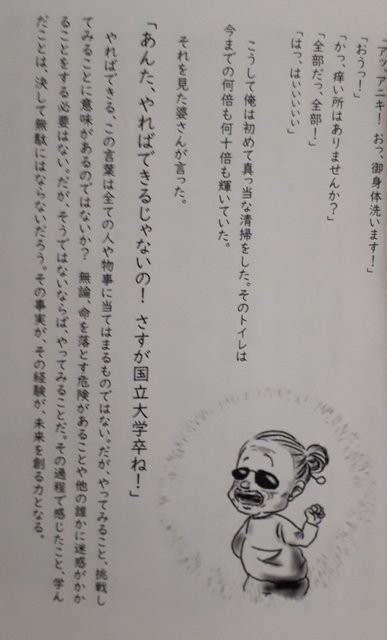 「アッ、アニキ！ おっ、御身体洗います！」
「おうっ！」
「かっ、痒い所はありませんか？」
「全部だっ、全部！」
「はっ、はいぃぃぃぃ」
こうして俺は初めて真っ当な清掃をした。そのトイレは
今までの何倍も何十倍も輝いていた。
それを見た婆さんが言った。
「あんた、やればできるじゃないの！ さすが国立大学卒ね！」
やればできる、この言葉は全ての人や物事に当てはまるものではない。だが、やってみること、挑戦し
てみることに意味があるのではないか？ 無論、命を落とす危険があることや他の誰かに迷惑がかか
ることをする必要はない。だが、そうではないならば、やってみることだ。その過程で感じたこと、学ん
だことは、決して無駄にはならないだろう。その事実が、その経験が、未来を創る力となる。